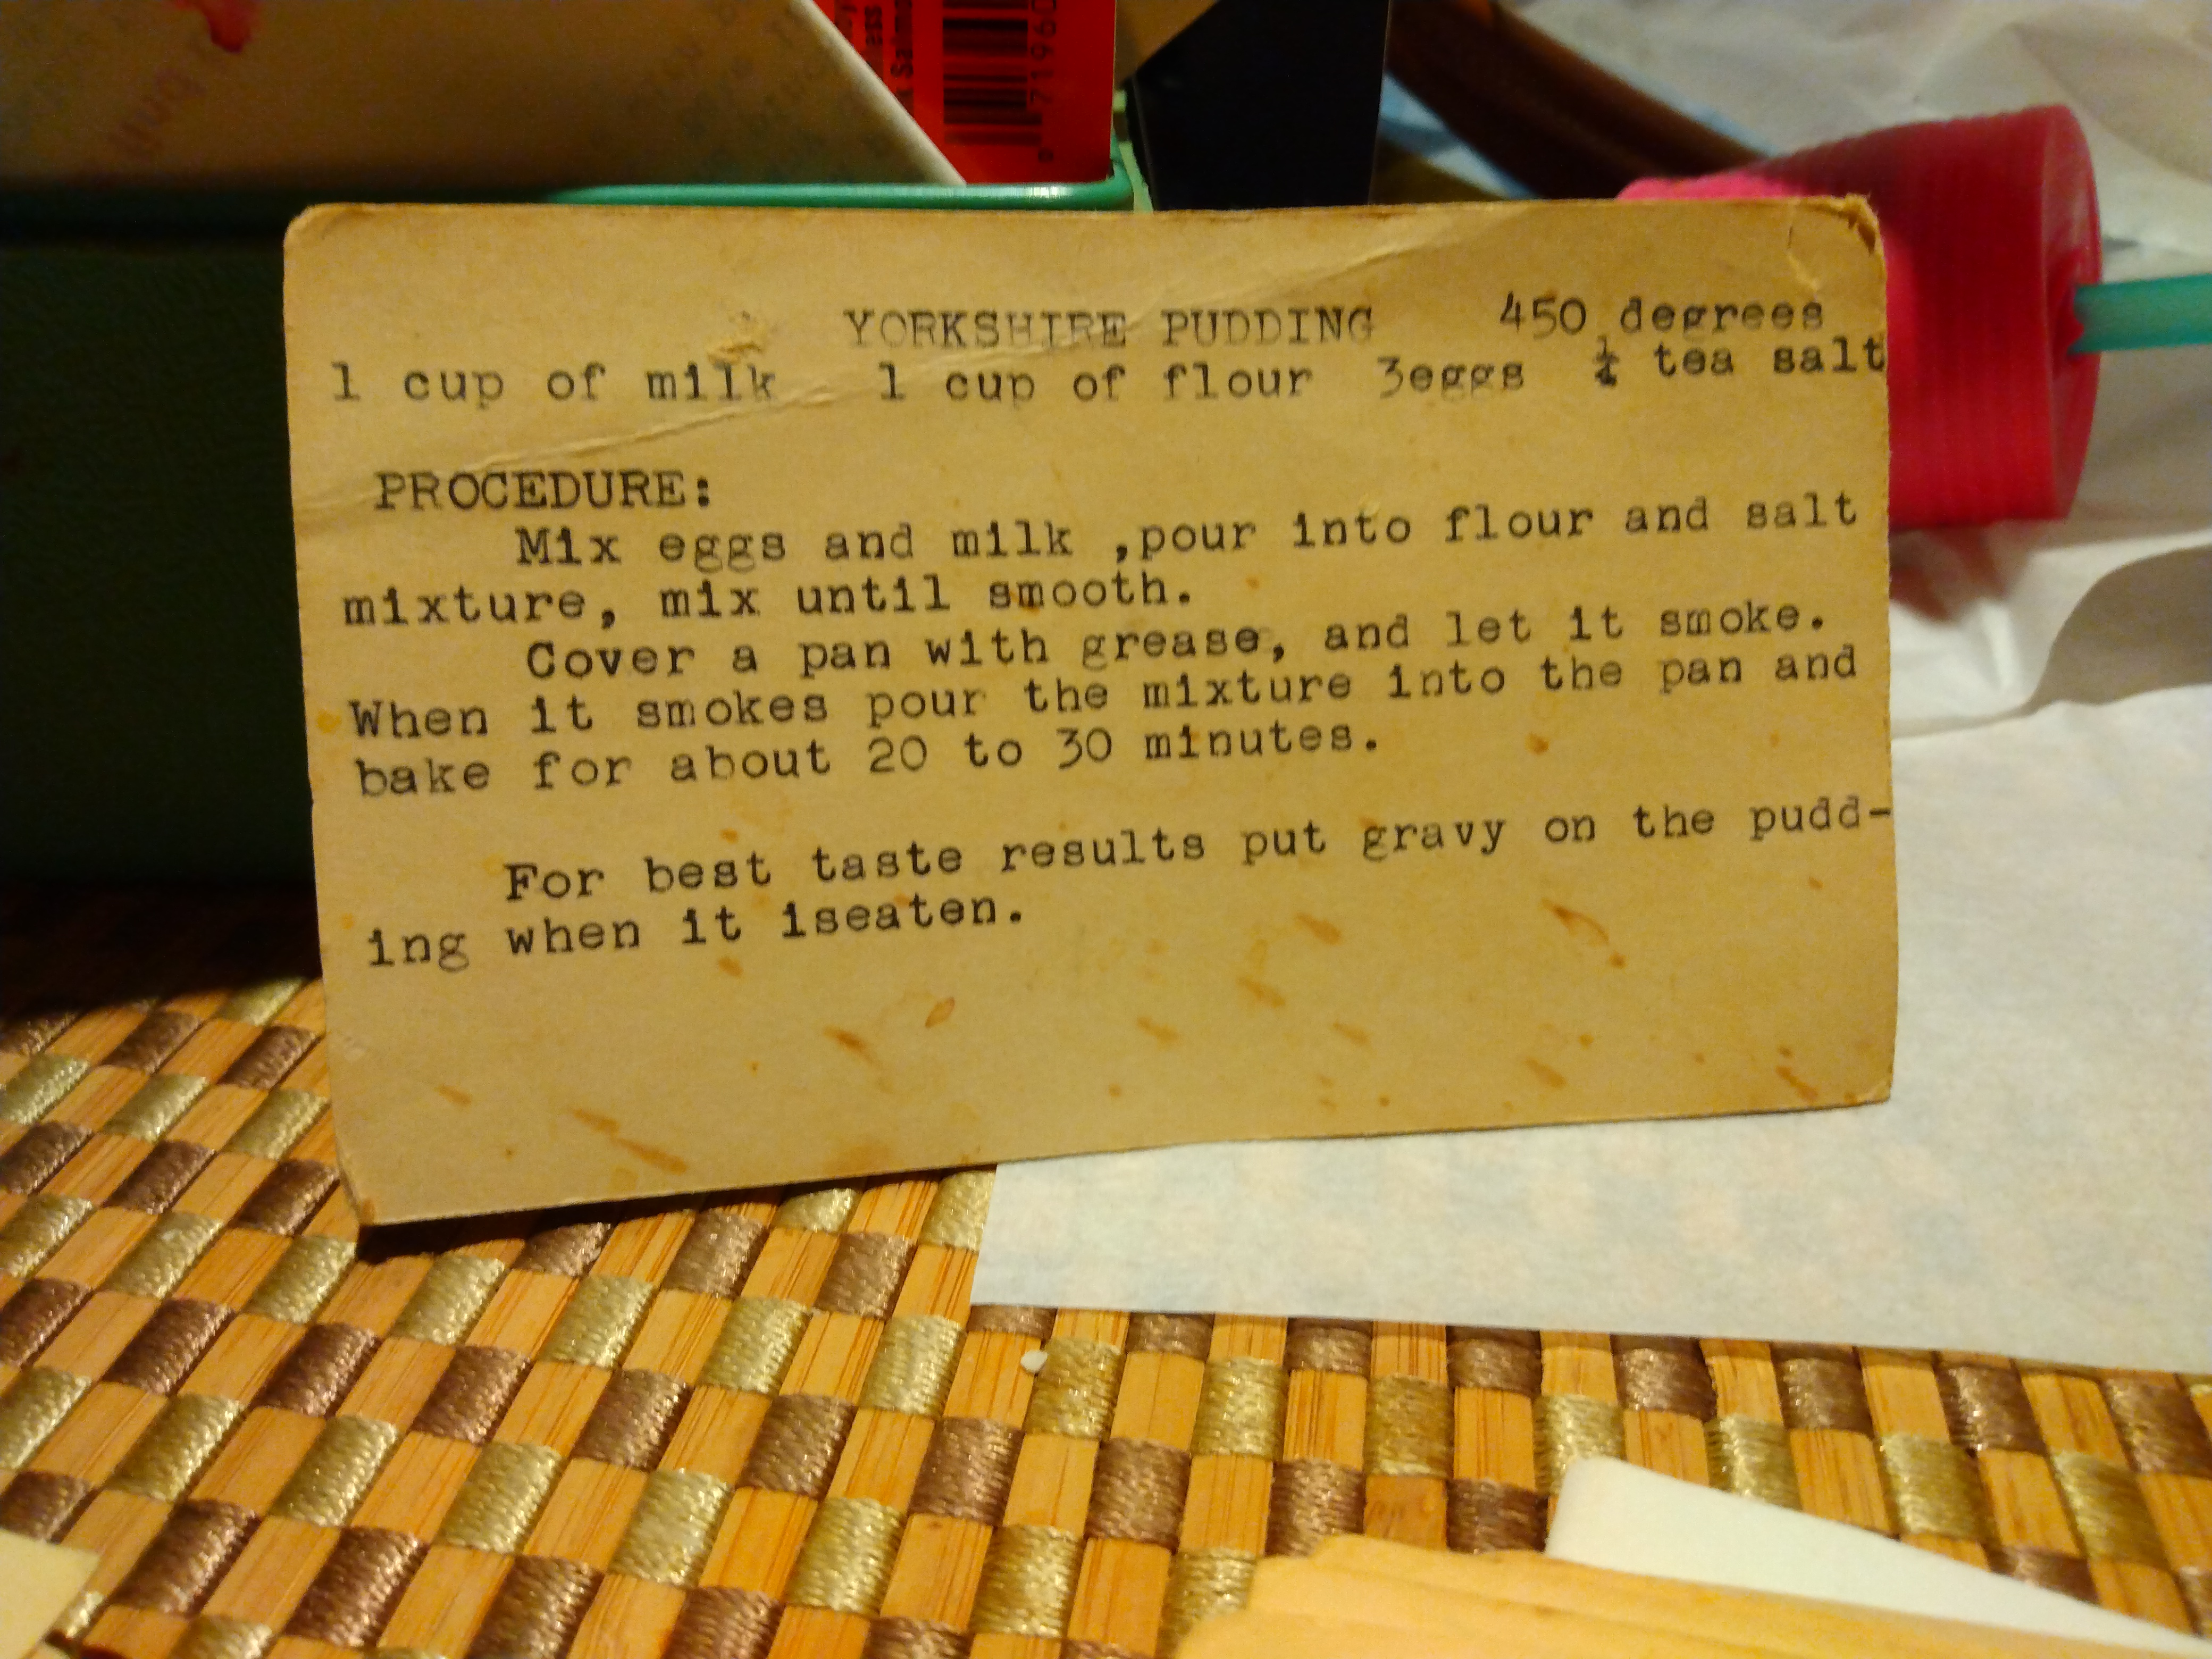 YORKSHIRE PUDDING 450 degrees
1 cup of milk 1 cup of flour 3eggs ¼ tea salt
PROCEDURE:
Mix eggs and milk ,pour into flour and salt
mixture, mix until smooth.
Cover a pan with grease, and let it smoke.
When it smokes pour the mixture into the pan and
bake for about 20 to 30 minutes.
For best taste results put gravy on the pudd-
ing when it iseaten.